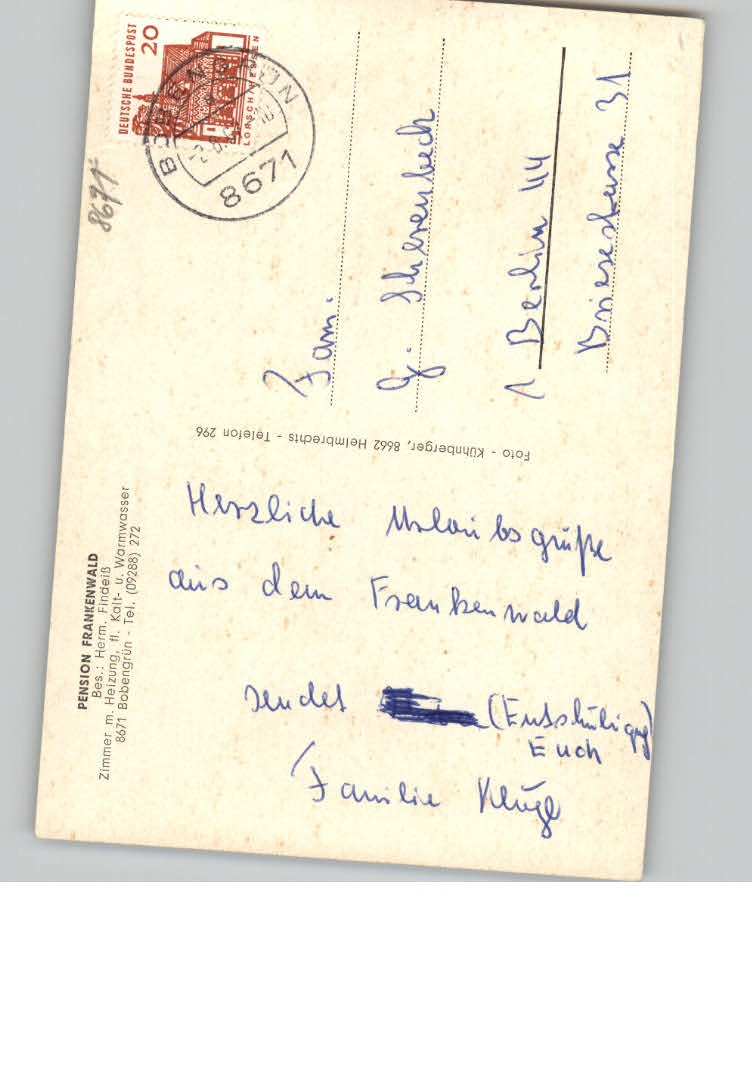 PENSION FRANKENWALD
Bes.: Herm. Findeiß
Zimmer m. Heizung, fl. Kalt- u. Warmwasser
8671 Bobengrün - Tel. (09288) 272
Herzliche Urlaubsgrüße
aus dem Frankenwald
sendet (Entschuligung)
Euch
Familie Klügl
Foto - Kühnberger, 8662 Helmbrechts - Telefon 296
DEUTSCHE BUNDESPOST
20
LORSCH HESSEN
BOBENGRÜN
8671
8671
Fam.
G. Scherenbeck
1 Berlin 44
Briesestrasse 31